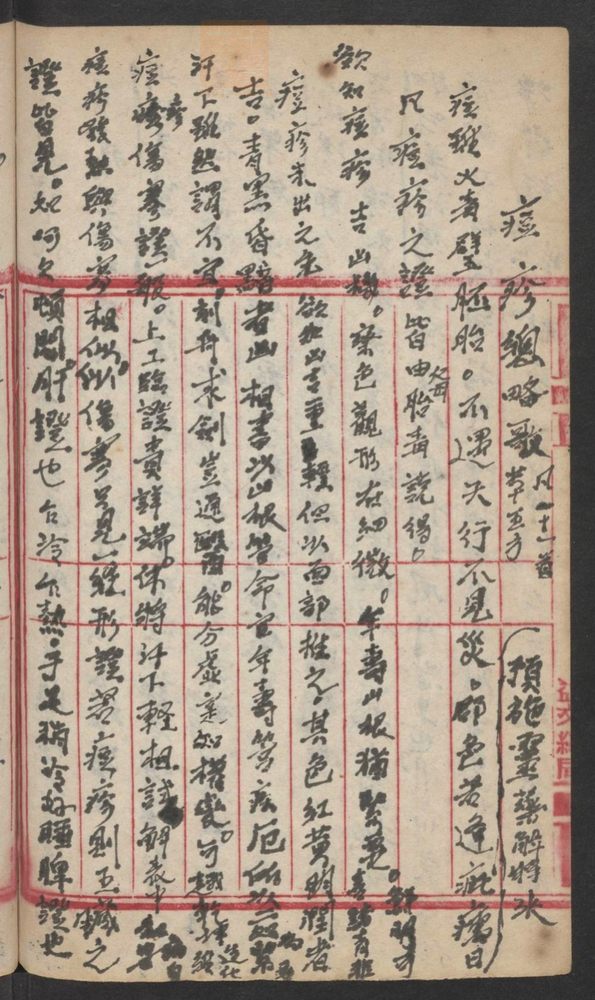 痘疹總略歌 凡一十一首
痘雖火毒發胚胎。不遇天行不見災。郁色若逢疵癘日 預施靈藥解將來
凡痘疹之證皆由胎毒說得。
欲知痘疹吉凶機。察色觀形在細微。年壽山根猶緊急。
痘疹未出之先欲知凶吉重輕但以面部推之。其色紅黃明潤者
吉。青黑昏黯者凶相書以山根管命宮年壽管疾厄
汗下雖然謂不宜。刻舟求劍豈通醫。能分虛實知權變。可
痘疹傷寒證一般。上工臨證貴詳端。休將汗下輕相試
痘疹發熱與傷寒相似但傷寒只見一經形證若痘疹則五臟之
證皆見。如呵欠頓悶肝證也乍冷乍熱手足稍冷好睡脾證也